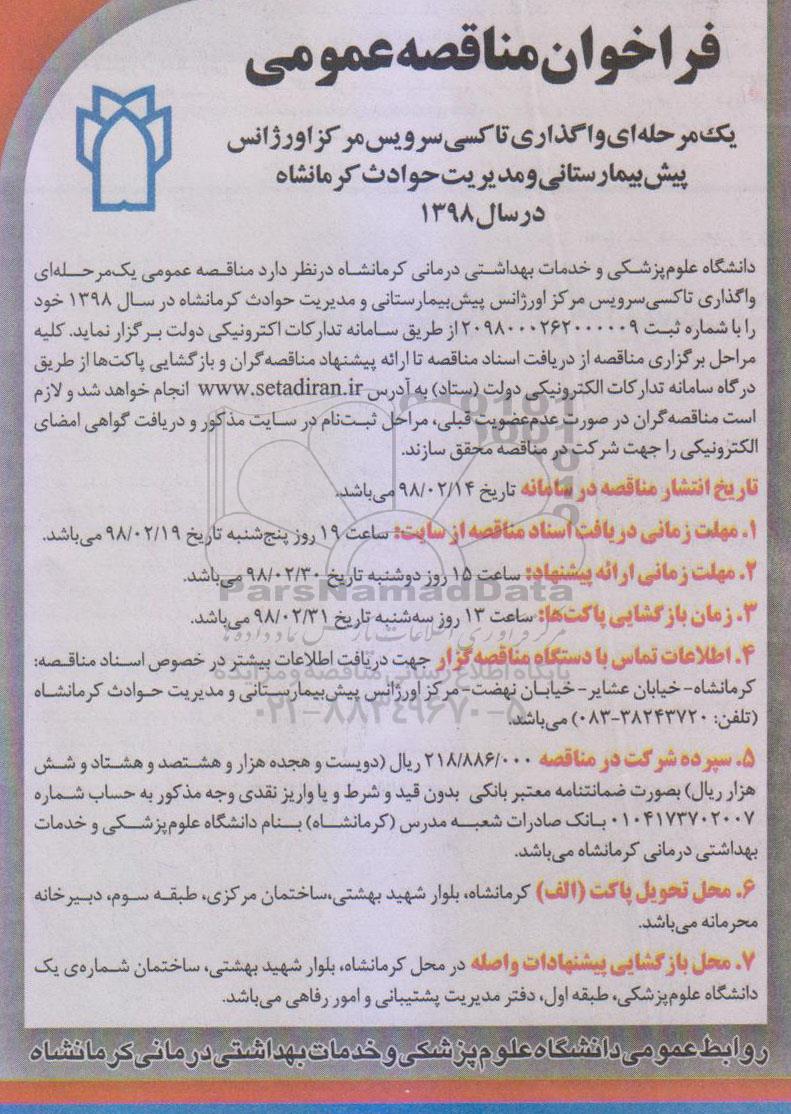 فراخوان مناقصه عمومی
یک مرحله‌ای واگذاری تاکسی سرویس مرکز اورژانس
پیش بیمارستانی و مدیریت حوادث کرمانشاه
در سال ۱۳۹۸
دانشگاه علوم‌پزشکی و خدمات بهداشتی درمانی کرمانشاه درنظر دارد مناقصه عمومی یک‌مرحله‌ای
واگذاری تاکسی‌سرویس مرکز اورژانس پیش‌بیمارستانی و مدیریت حوادث کرمانشاه در سال ۱۳۹۸ خود
را با شماره ثبت ۲۰۹۸۰۰۰۲۶۲۰۰۰۰۰۹ از طریق سامانه تدارکات اکترونیکی دولت برگزار نماید. کلیه
مراحل برگزاری مناقصه از دریافت اسناد مناقصه تا ارائه پیشنهاد مناقصه‌گران و بازگشایی پاکت‌ها از طریق
درگاه سامانه تدارکات الکترونیکی دولت (ستاد) به آدرس www.setadiran.ir انجام خواهد شد و لازم
است مناقصه‌گران در صورت عدم‌عضویت قبلی، مراحل ثبت‌نام در سایت مذکور و دریافت گواهی امضای
الکترونیکی را جهت شرکت در مناقصه محقق سازند.
تاریخ انتشار مناقصه در سامانه تاریخ ۹۸/۰۲/۱۴ می‌باشد.
۱. مهلت زمانی دریافت اسناد مناقصه از سایت: ساعت ۱۹ روز پنج‌شنبه تاریخ ۹۸/۰۲/۱۹ می‌باشد.
۲. مهلت زمانی ارائه پیشنهاد: ساعت ۱۵ روز دوشنبه تاریخ ۹۸/۰۲/۳۰ می‌باشد.
ParsNamadData
۳. زمان بازگشایی پاکت‌ها: ساعت ۱۳ روز سه‌شنبه تاریخ ۹۸/۰۲/۳۱ می‌باشد.
مرکز فرآوری اطلاعات پارس نماد داده ها
۴. اطلاعات تماس با دستگاه مناقصه‌گزار جهت دریافت اطلاعات بیشتر در خصوص اسناد مناقصه:
پایگاه اطلاع رسانی مناقصه و مزایده
کرمانشاه- خیابان عشایر- خیابان نهضت- مرکز اورژانس پیش‌بیمارستانی و مدیریت حوادث کرمانشاه
۰۲۱-۸۸۳۴۹۶۷۰-۵
(تلفن: ۳۸۲۴۳۷۲۰-۰۸۳) می‌باشد.
۵. سپرده شرکت در مناقصه ۲۱۸/۸۸۶/۰۰۰ ریال (دویست و هجده هزار و هشتصد و هشتاد و شش
هزار ریال) بصورت ضمانتنامه معتبر بانکی بدون قید و شرط و یا واریز نقدی وجه مذکور به حساب شماره
۰۱۰۴۱۷۳۷۰۲۰۰۷ بانک صادرات شعبه مدرس (کرمانشاه) بنام دانشگاه علوم‌پزشکی و خدمات
بهداشتی درمانی کرمانشاه می‌باشد.
۶. محل تحویل پاکت (الف) کرمانشاه، بلوار شهید بهشتی،ساختمان مرکزی، طبقه سوم، دبیرخانه
محرمانه می‌باشد.
۷. محل بازگشایی پیشنهادات واصله در محل کرمانشاه، بلوار شهید بهشتی، ساختمان شماره‌ی یک
دانشگاه علوم‌پزشکی، طبقه اول، دفتر مدیریت پشتیبانی و امور رفاهی می‌باشد.
روابط عمومی دانشگاه علوم پزشکی و خدمات بهداشتی درمانی کرمانشاه